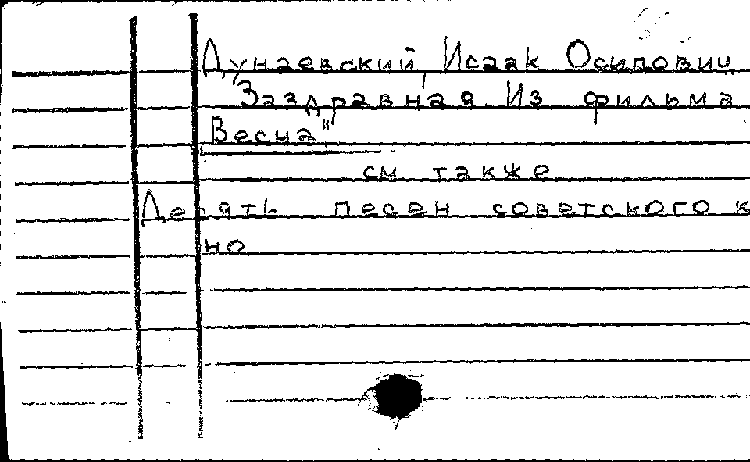 Дунаевский, Исаак Осипович
Заздравная. Из фильма
Весна"
см. также
Десять песен советского к
но